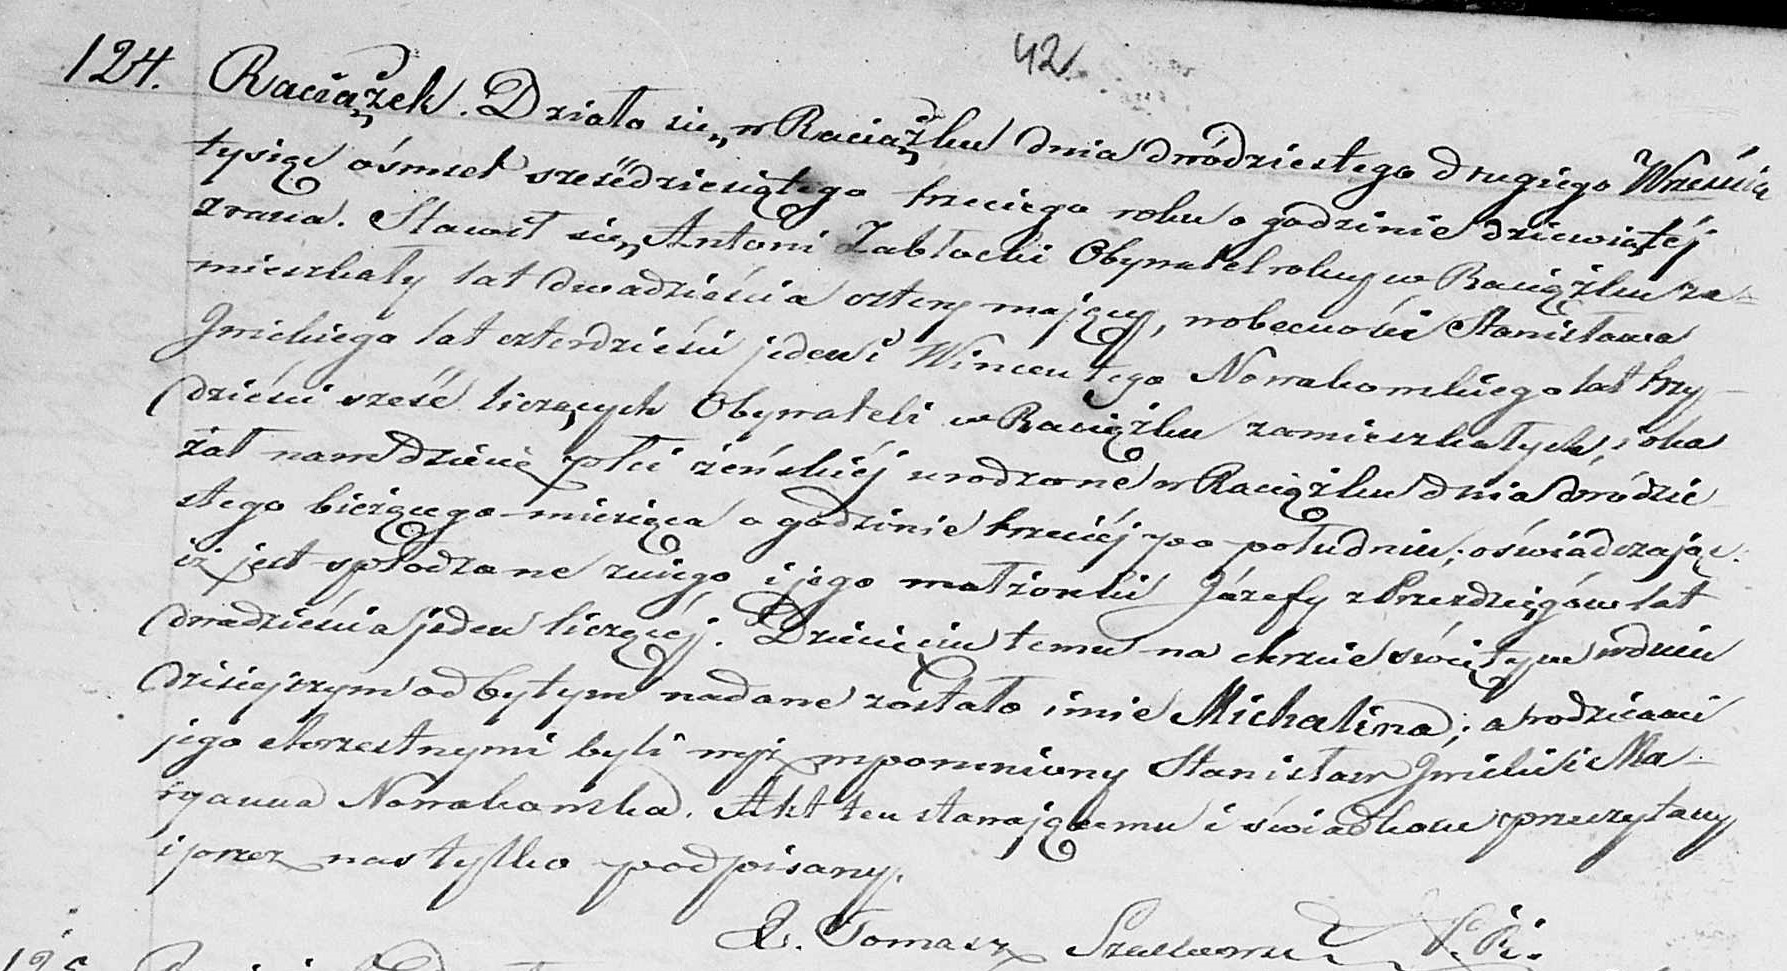 42
124. Raciążek. Działo się w Raciążku dnia dwódziestego drugiego Wrześnią
tysiąc ośmset sześćdziesiątego trzeciego roku o godzinie dziewiątéj
zrana. Stawił się Antoni Zabłocki Obywatel rolny w Raciążku za-
mieszkały lat dwadzieścia cztery mający, w obecności Stanisława
lat czterdzieści jeden i Wincentego Nowakowskiego lat trzy-
dzieści sześć liczących Obywateli w Raciążku zamieszkałych, i oka
zał nam dziecię płci żeńskiéj urodzone w Raciążku dnia dwódzie-
stego bieżącego miesiąca o godzinie trzeciéj po południu; oświadczając
iż jest spłodzone z niego i jego małżonki Józefy z lat
dwadzieścia jeden liczącéj. Dziecięciu temu na chrzcie świętym w dniu
dzisiejszym odbytym nadane zostało imie Michalina; a rodzicami
jego chrzestnymi byli wyż wpomniony Stanisław i Ma-
ryanna Nowakowska. Akt ten stawającemu i świadkom przeczytany
i przez nas tylko podpisany.
X. Tomasz
125